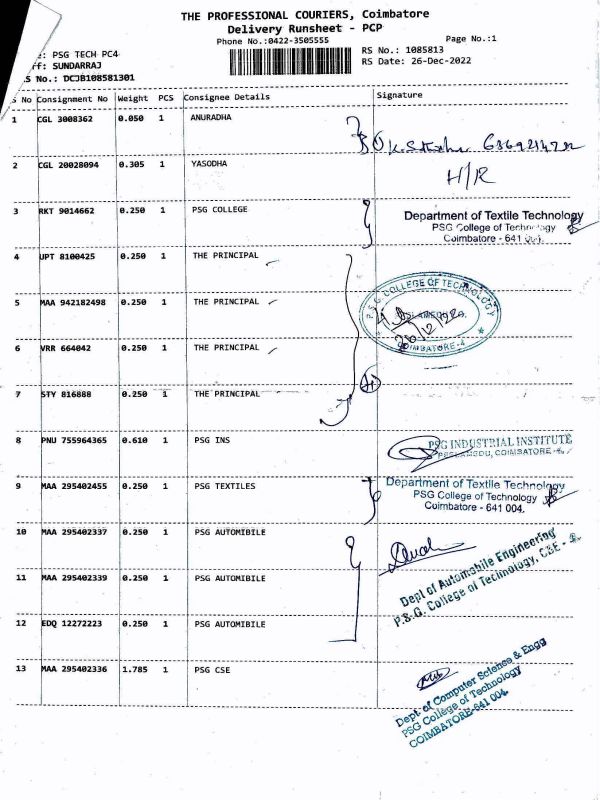 THE PROFESSIONAL COURIERS, Coimbatore
Delivery Runsheet - PCP
Phone No.:0422-3505555
Page No.:1
: PSG TECH PC4
RS No.: 1085813
ff: SUNDARRAJ
RS Date: 26-Dec-2022
S No.: DCJB108581301
S No Consignment No Weight PCS Consignee Details Signature
1 CGL 3008362 0.050 1 ANURADHA
6369214792
2 CGL 20028094 0.305 1 YASODHA
H/R
3 RKT 9014662 0.250 1 PSG COLLEGE
Department of Textile Technology
PSG College of Technology
Coimbatore - 641 004.
4 UPT 8100425 0.250 1 THE PRINCIPAL
P.S.G. COLLEGE OF TECHNOLOGY
5 MAA 942182498 0.250 1 THE PRINCIPAL
26/12/22
COIMBATORE-4
6 VRR 664042 0.250 1 THE PRINCIPAL
7 STY 816888 0.250 1 THE PRINCIPAL
4
8 PNU 755964365 0.610 1 PSG INS
PSG INDUSTRIAL INSTITUTE
PEELAMEDU, COIMBATORE
9 MAA 295402455 0.250 1 PSG TEXTILES
Department of Textile Technology
PSG College of Technology
Coimbatore - 641 004.
10 MAA 295402337 0.250 1 PSG AUTOMIBILE
Dept of Automobile Engineering
P.S.G. College of Technology, CBE -
11 MAA 295402339 0.250 1 PSG AUTOMIBILE
12 EDQ 12272223 0.250 1 PSG AUTOMIBILE
13 MAA 295402336 1.785 1 PSG CSE
Dept. of Computer Science & Engg
PSG College of Technology
COIMBATORE-641 004.